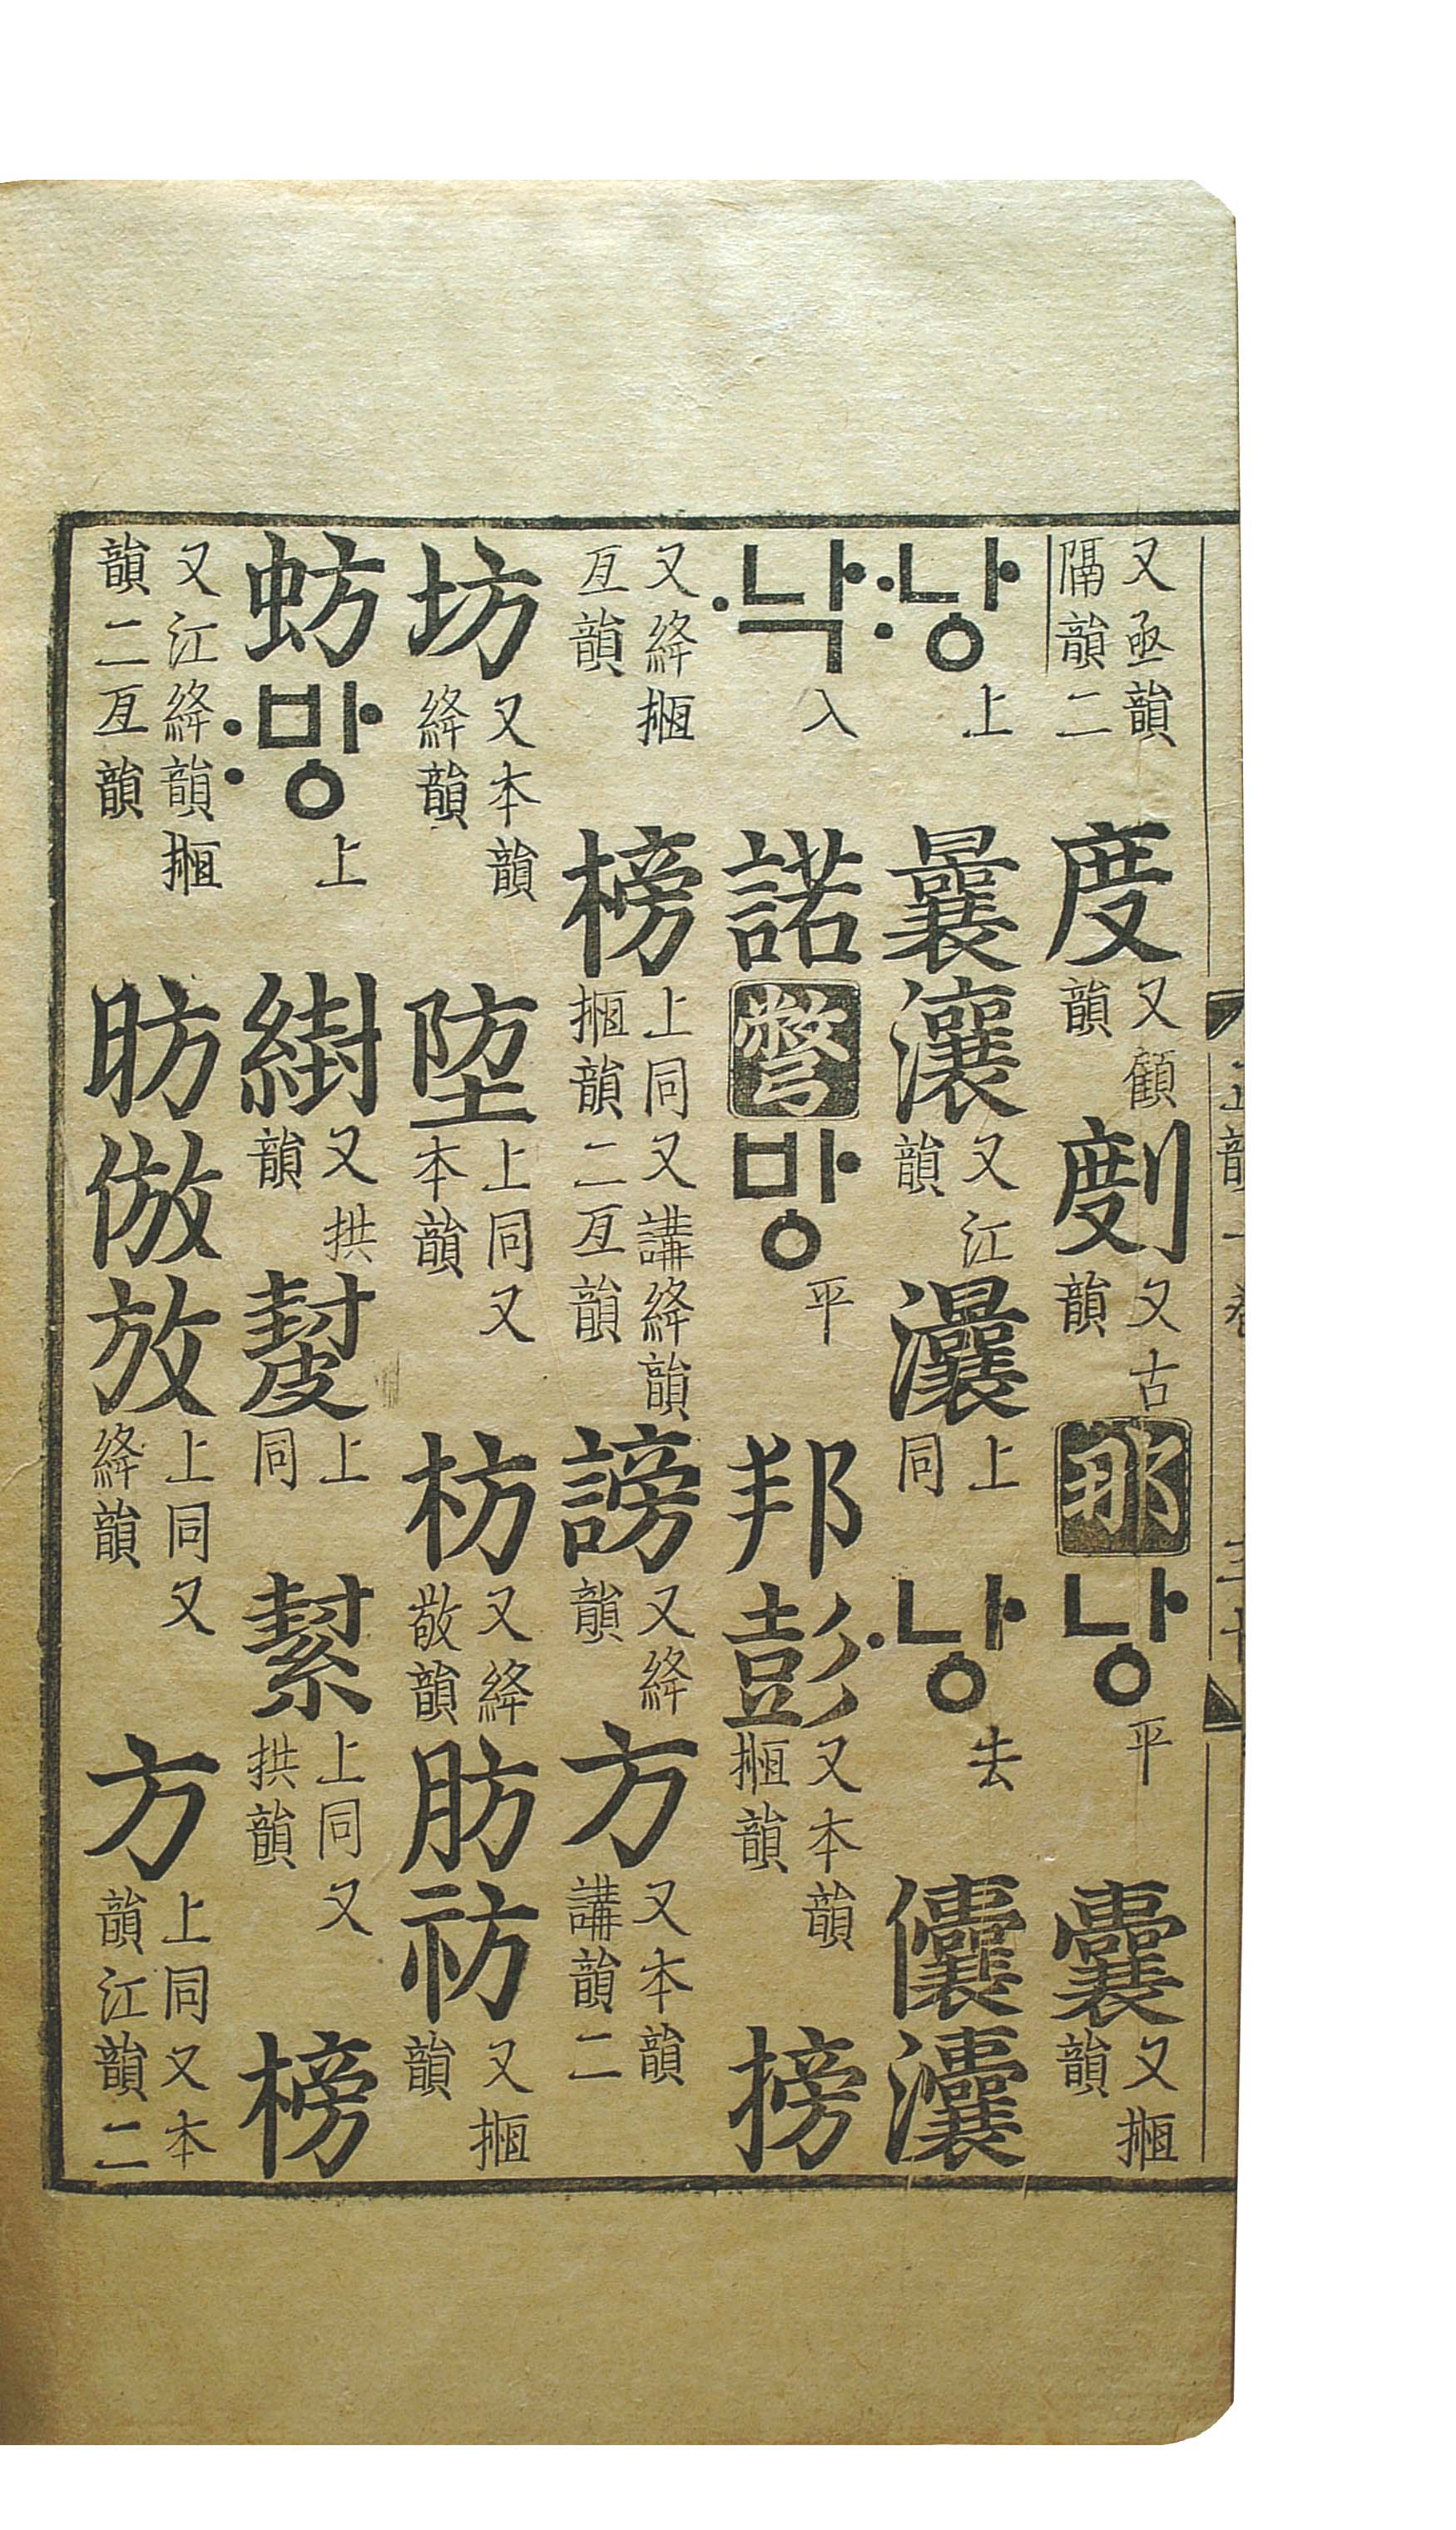 又亟韻隔韻二度又顧韻剫又古韻那낭平囊又揯韻
낭〯上曩瀼又江韻上同낭〮去儾灢
낙〮入諾彆방平邦彭又本韻揯韻搒
又絳揯亙韻榜上同又講絳韻揯韻二亙韻謗又絳韻方又本韻講韻二
坊又本韻絳韻埅上同又本韻枋又絳敬韻肪祊又揯韻
蚄방〯上又拱韻上同上同又拱韻榜
又江絳韻揯韻二亙韻昉倣放上同又絳韻方上同又本韻江韻二